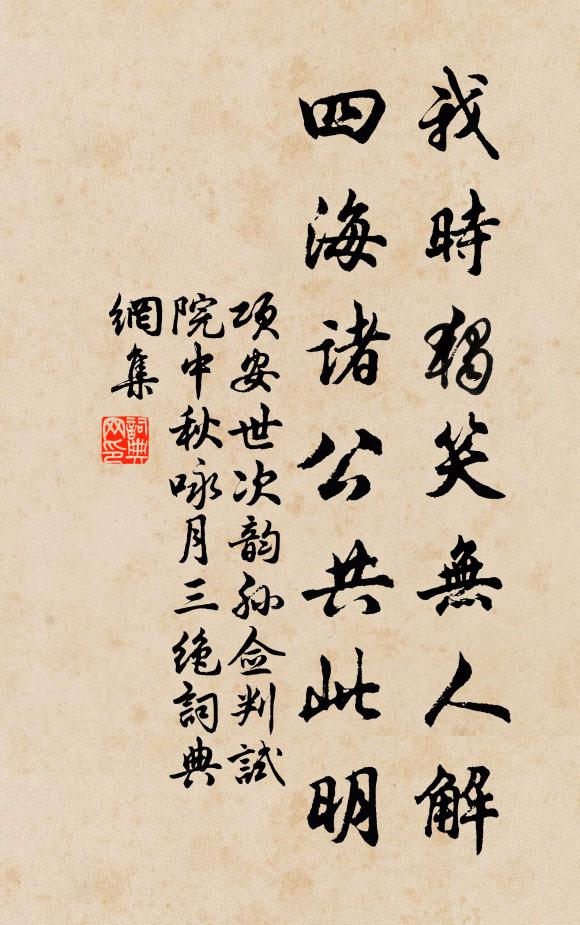 我時獨笑無人解
四海諸公共此明
項安世次韵孙佥判試
院中秋咏月三绝詞典
網集
詞典
网印